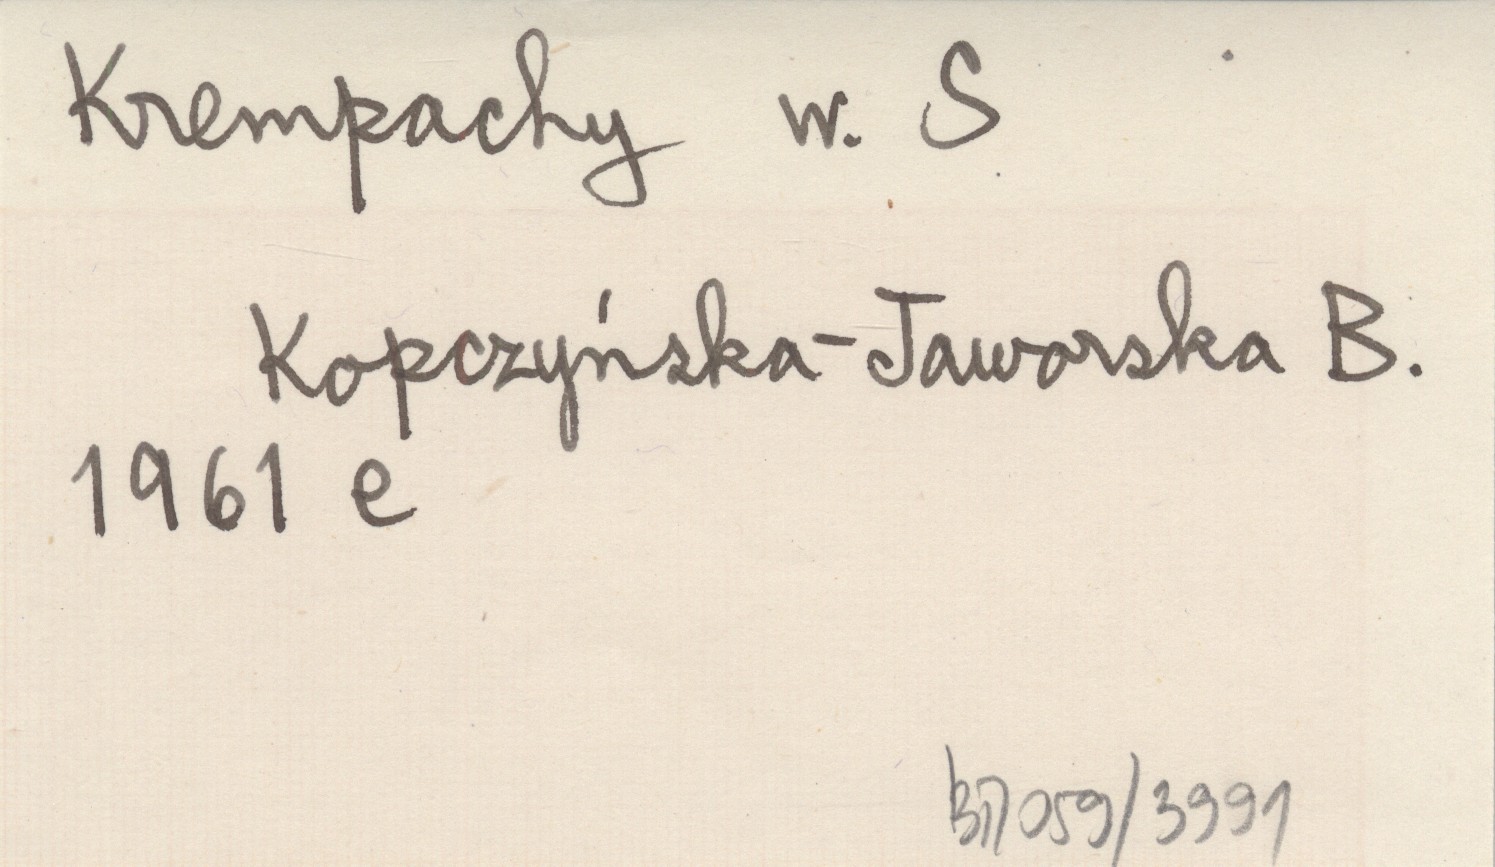 Krempachy w. S
Kopczyńska-Jaworska B.
1961 e
059/3991